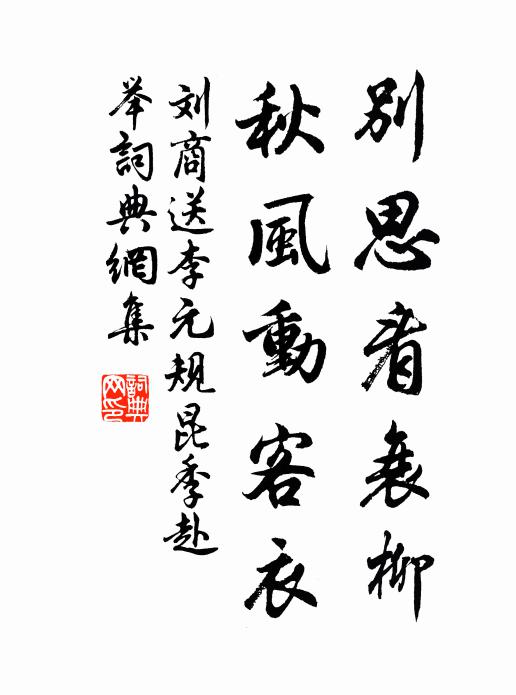 別思看衰柳
秋風動客衣
刘商送李元規昆季赴
举詞典網集
詞典网印